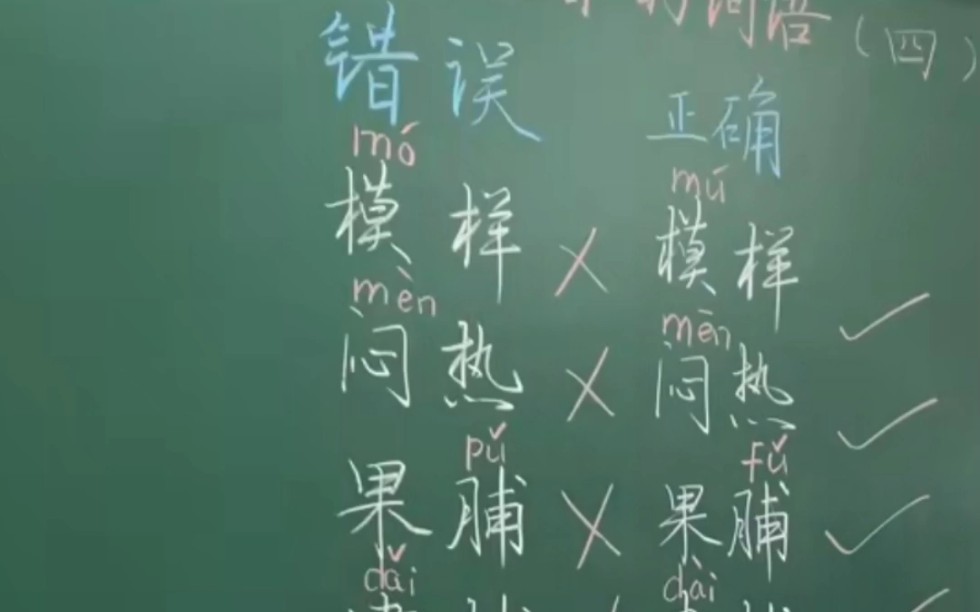 的词语（四）
错误 正确
mó mú
模样 × 模样 ✓
mèn mēn
闷热 × 闷热 ✓
pǔ fǔ
果脯 × 果脯 ✓
dǎi dài